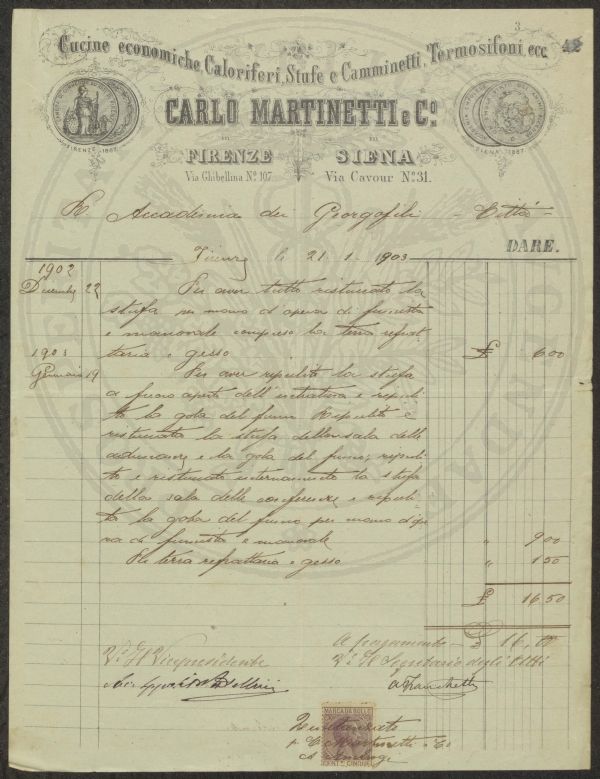 3
Cucine economiche, Caloriferi, Stufe e Camminetti, Termosifoni, ecc.
CARLO MARTINETTI e C.º
in FIRENZE in SIENA
Via Ghibellina Nº 107 Via Cavour Nº 31.
FIRENZE 1887
SIENA 1887
R. Accademia dei Georgofili - Città -
DARE.
Firenze li 21 - 1 - 1903
1902
Decembre 22 Per aver tutto restaurato la
stufa per mano d'opera di fumista
e manovale compreso la terra refrat
taria e gesso £ 6.00
1903
Gennaio 19 Per aver ripulito la stufa
a fuoco aperto dell'entratura e ripuli
to la gola del fumo Ripulito e
restaurato la stufa della sala delle
e la gola del fumo, ripuli
to e restaurato internamente la stufa
della sala delle conferenze e ripuli
to la gola del fumo per mano d'ope
ra di fumista e manovale " 9.00
Più terra refrattaria e gesso " 1.50
£ 16.50
A pagamento £ 16,50
Vº Il Vicepresidente Vº Il Segretario degli Atti
A Franchetti
MARCA DA BOLLO
CENT. CINQUE
Quietanzato
p C Martinetti e Cº